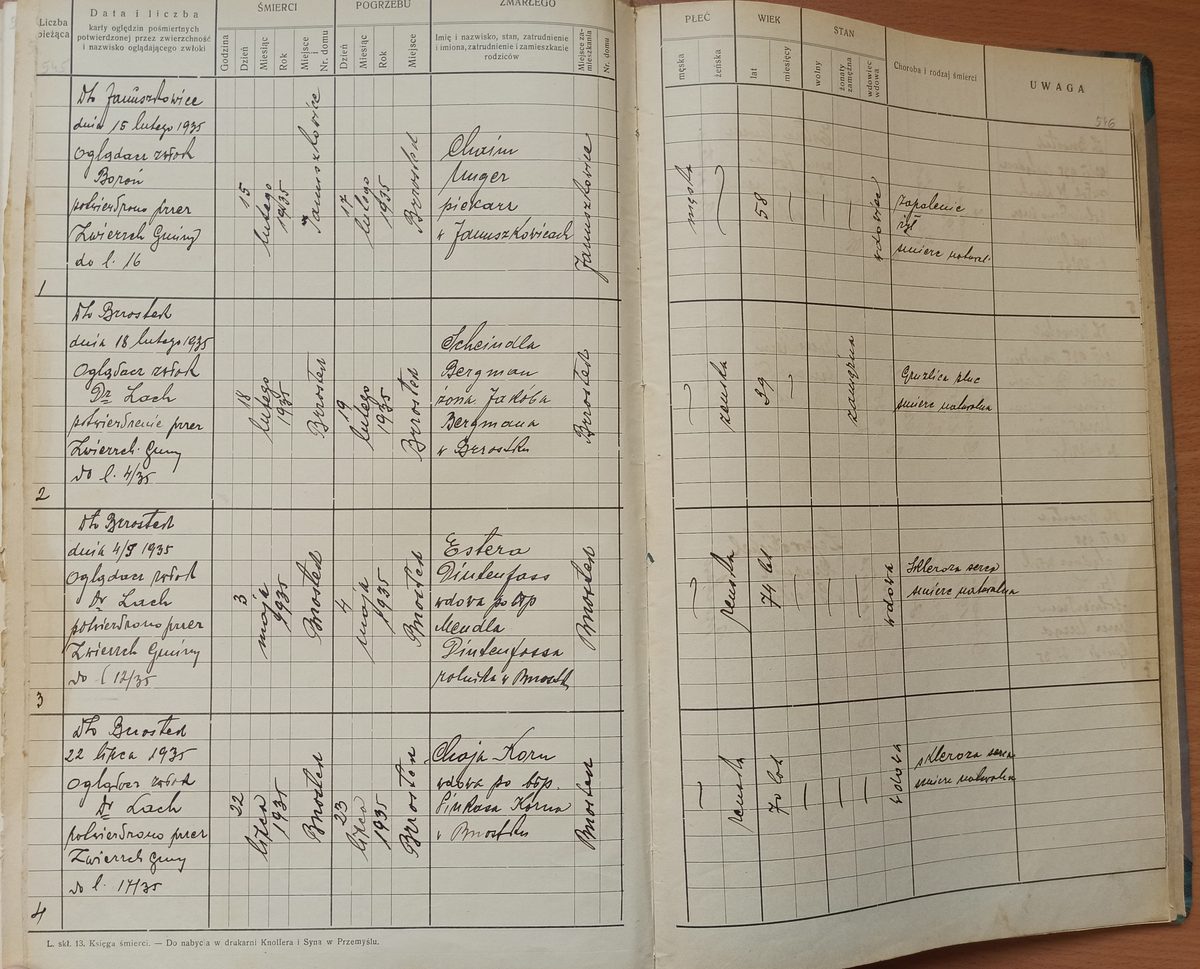 Liczba bieżąca
Data i liczba
karty oględzin pośmiertnych
potwierdzonej przez zwierzchność
i nazwisko oglądającego zwłoki
ŚMIERCI
Godzina
Dzień
Miesiąc
Rok
Miejsce i Nr. domu
POGRZEBU
Dzień
Miesiąc
Rok
Miejsce
ZMARŁEGO
Imię i nazwisko, stan, zatrudnienie
i imiona, zatrudnienie i zamieszkanie
rodziców
Miejsce zamieszkania
Nr. domu
PŁEĆ
męska
żeńska
WIEK
lat
miesięcy
STAN
wolny
żonaty zamężna
wdowiec wdowa
Choroba i rodzaj śmierci
UWAGA
545
546
1
Dto Januszkowice
dnia 15 lutego 1935
Oglądacz zwłok
Boroń
potwierdzono przez
Zwierzch Gminy
do l. 16
15
lutego
1935
Januszkowice
17
lutego
1935
Brzostek
Chaim
Unger
piekarz
w Januszkowicach
Januszkowice
męska
58
wdowiec
zapalenie
żył
śmierć natural.
2
Dto Brzostek
dnia 18 lutego 1935
Oglądacz zwłok
Dr Lach
potwierdzenie przez
Zwierzch. Gminy
do l. 4/35
18
lutego
1935
Brzostek
19
lutego
1935
Brzostek
Scheindla
Bergman
żona Jakóba
Bergmana
w Brzostku
Brzostek
żeńska
39
zamężna
Gruźlica płuc
śmierć naturalna
3
Dto Brzostek
dnia 4/5 1935
Oglądacz zwłok
Dr Lach
potwierdzono przez
Zwierzch Gminy
do l 12/35
3
maja
1935
Brzostek
4
maja
1935
Brzostek
Estera
Dintenfass
wdowa po błp
Mendla
Dintenfassa
rolnika w Brzostk
Brzostek
żeńska
74 lat
wdowa
Skleroza serca
śmierć naturalna
4
Dto Brzostek
22 lipca 1935
Oglądacz zwłok
Dr Lach
potwierdzono przez
Zwierzch Gminy
do l. 17/35
22
lipca
1935
Brzostek
23
lipca
1935
Brzostek
Chaja Korn
wdowa po błp.
Pinkasa Korna
w Brzostku
Brzostek
żeńska
70 lat
wdowa
skleroza serca
śmierć naturalna
L. skł. 13. Księga śmierci. — Do nabycia w drukarni Knollera i Syna w Przemyślu.